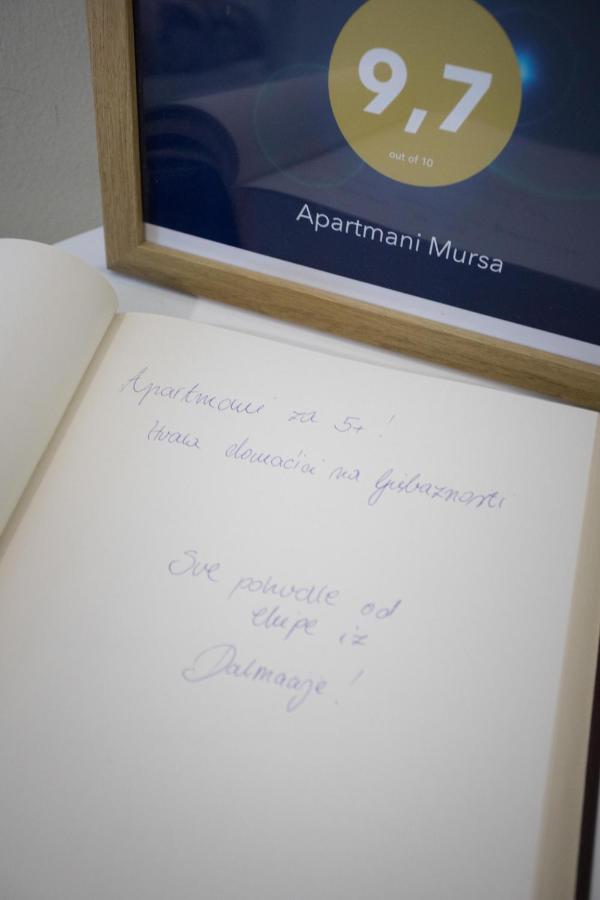 9,7
out of 10
Apartmani Mursa
Apartmani za 5+!
Hvala domaćici na ljubaznosti
Sve pohvale od
ekipe iz
Dalmacije!